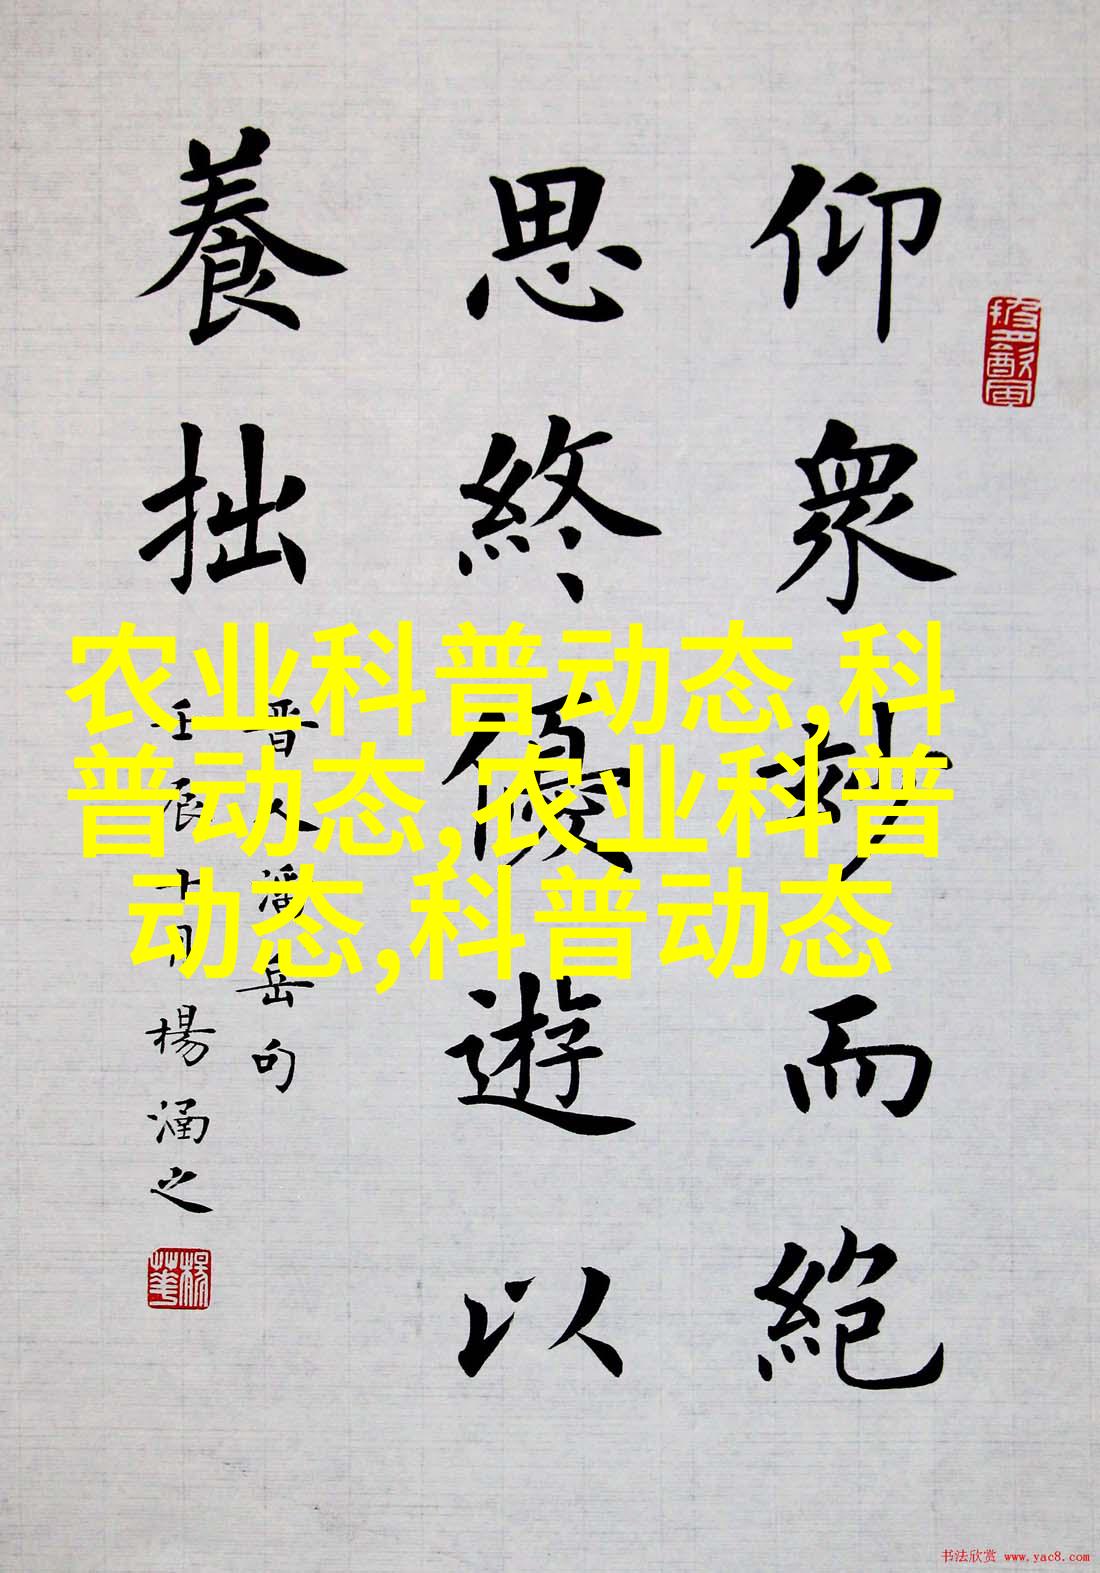 仰衆妙而絕
思終優遊以
養拙
晋人潘岳句
壬辰十月楊涵之
农业科普动态,科
普动态,农业科普
动态,科普动态
书法欣赏 www.yac8.com